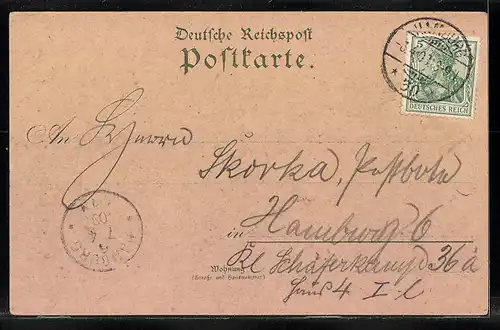 Deutsche Reichspost
Postkarte.
HAMBURG
30
DEUTSCHES REICH
An Herrn
Skorka, Postbote
in Hamburg 6
HAMBURG
7 4
03
Kl Schäferkamp 36a
Wohnung
(Straße und Hausnummer)
Haus 4 I. l